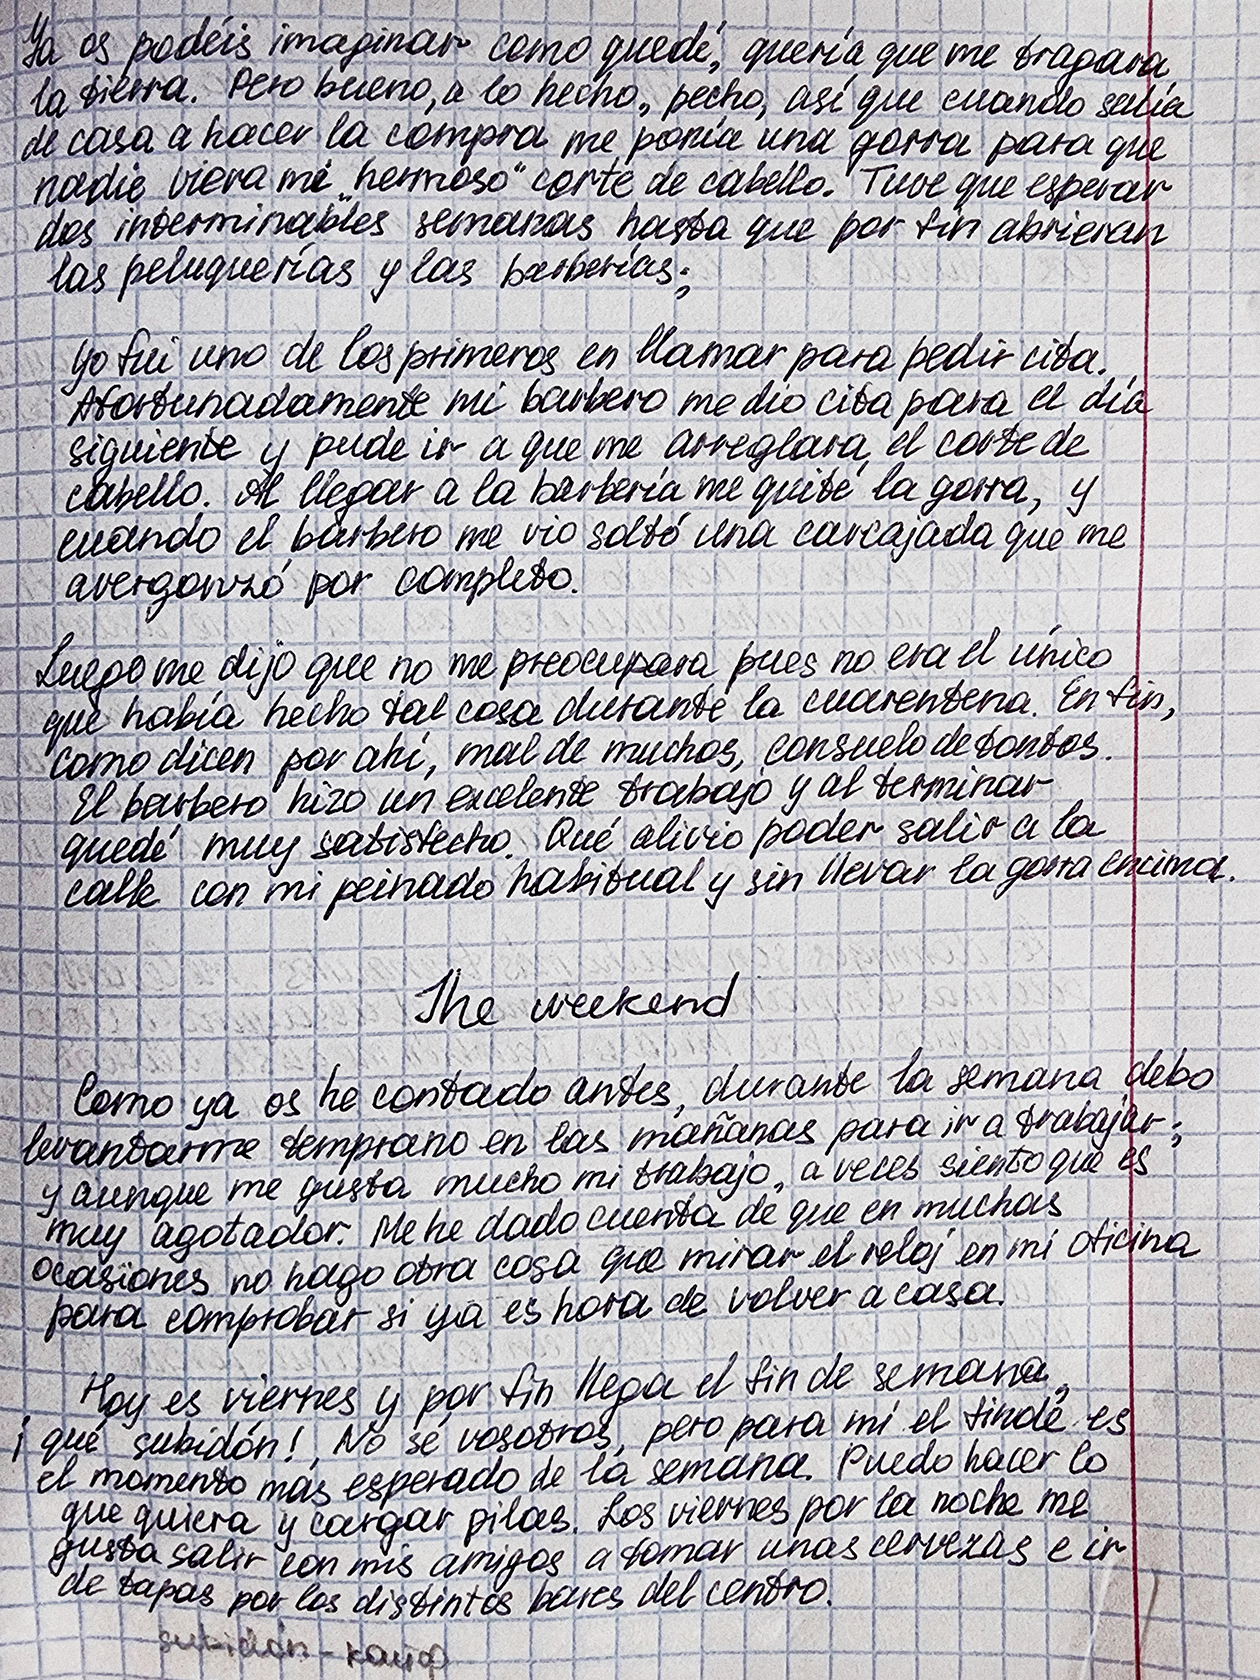 Ya os podéis imaginar como quedé, quería que me tragara
la tierra. Pero bueno, a lo hecho, pecho, así que cuando salía
de casa a hacer la compra me ponía una gorra para que
nadie viera mi „hermoso“ corte de cabello. Tuve que esperar
dos interminables semanas hasta que por fin abrieran
las peluquerías y las barberías;
Yo fui uno de los primeros en llamar para pedir cita.
Afortunadamente mi barbero me dio cita para el día
siguiente y pude ir a que me arreglara el corte de
cabello. Al llegar a la barbería me quité la gorra, y
cuando el barbero me vio soltó una carcajada que me
avergonzó por completo.
Luego me dijo que no me preocupara pues no era el único
que había hecho tal cosa durante la cuarentena. En fin,
como dicen por ahí, mal de muchos, consuelo de tontos.
El barbero hizo un excelente trabajo y al terminar
quedé muy satisfecho. Qué alivio poder salir a la
calle con mi peinado habitual y sin llevar la gorra encima.
The weekend
Como ya os he contado antes, durante la semana debo
levantarme temprano en las mañanas para ir a trabajar;
y aunque me gusta mucho mi trabajo, a veces siento que es
muy agotador. Me he dado cuenta de que en muchas
ocasiones no hago otra cosa que mirar el reloj en mi oficina
para comprobar si ya es hora de volver a casa.
Hoy es viernes y por fin llega el fin de semana,
¡qué subidón! No sé vosotros, pero para mí el finde es
el momento más esperado de la semana. Puedo hacer lo
que quiera y cargar pilas. Los viernes por la noche me
gusta salir con mis amigos a tomar unas cervezas e ir
de tapas por los distintos bares del centro.
subidón - кайф